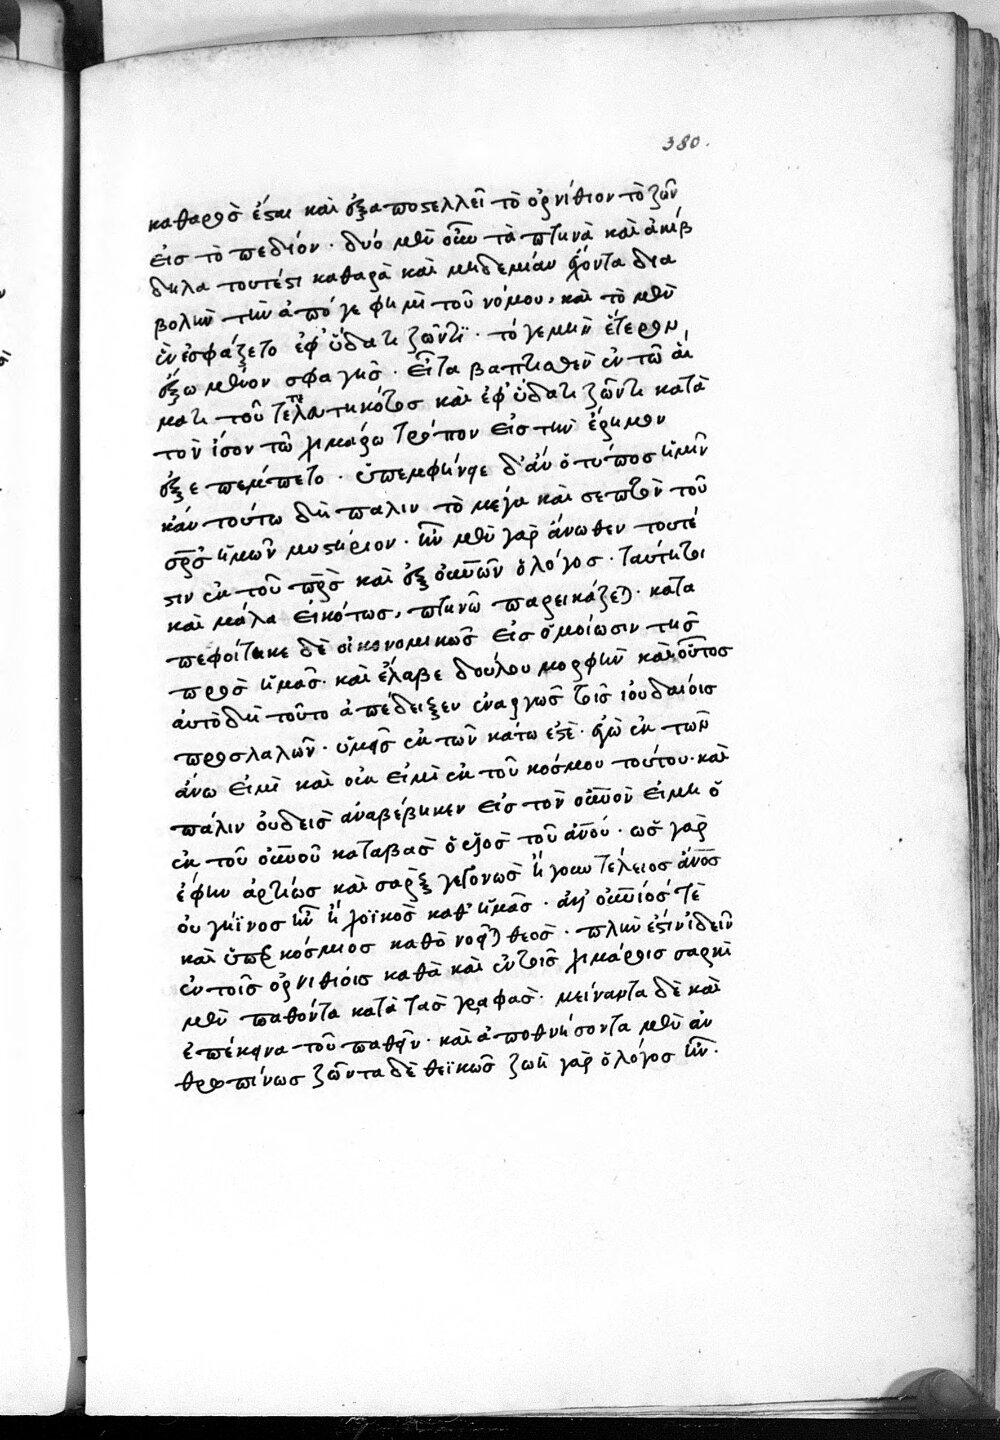 380.
καθαρὸς ἔσται καὶ ἐξαποστελλεῖ τὸ ὀρνίθιον τὸ ζῶν
εἰς τὸ πεδίον· δύο μὲν οὖν τὰ πτηνὰ καὶ ἀκίβ
δηλα τουτέστι καθαρὰ καὶ μηδεμίαν ἔχοντα δια
βολὴν τὴν ἀπό γε φημὶ τοῦ νόμου, καὶ τὸ μὲν
ἓν ἐσφάζετο ἐφ' ὕδατι ζῶντι· τό γε μὴν ἕτερον,
ἔξω μένον σφαγῆς· εἶτα βαπτισθὲν ἐν τῶ αἵ
ματι τοῦ τετελευτηκότος καὶ ἐφ' ὕδατι ζῶντι κατὰ
τὸν ἴσον τῶ χιμάρω τρόπον εἰς τὴν ἔρημον
ἐξεπέμπετο· ὑπεμφήνειε δ' ἂν ὁ τύπος ἡμῖν
κἂν τούτω δὴ πάλιν τὸ μέγα καὶ σεπτὸν τοῦ
σρς ἡμῶν μυστήριον· ἦν μὲν γὰρ ἄνωθεν τουτέ
στιν ἐκ τοῦ πρς καὶ ἐξ οὐνῶν ὁ λόγος· ταύτητοι
καὶ μάλα εἰκότως, πτηνῶ παρεικάζεται· κατα
πεφοίτηκε δὲ οἰκονομικῶς εἰς ὁμοίωσιν τῆς
πρὸς ἡμᾶς· καὶ ἔλαβε δούλου μορφὴν καὶ οὗτος
αὐτὸ δὴ τοῦτο ἀπέδειξεν ἐναργῶς τοῖς ἰουδαίοις
προσλαλῶν· ὑμεῖς ἐκ τῶν κάτω ἐστὲ· ἐγὼ ἐκ τῶν
ἄνω εἰμὶ καὶ οὐκ εἰμὶ ἐκ τοῦ κόσμου τούτου· καὶ
πάλιν οὐδεὶς ἀναβέβηκεν εἰς τὸν οὐνὸν εἰ μὴ ὁ
ἐκ τοῦ οὐνοῦ καταβὰς ὁ υἱὸς τοῦ ἀνου· ὡς γὰρ
ἔφην ἀρτίως καὶ σὰρξ γεγονὼς ἤγουν τέλειος ἄνος
οὐ γήϊνος ἦν ἢ χοϊκὸς καθ' ἡμᾶς· ἀλλ' οὐνιός τὲ
καὶ ὑπερκόσμιος καθὸ νοεῖται θεὸς· πλὴν ἔστιν ἰδεῖν
ἐν τοῖς ὀρνιθίοις καθὰ καὶ ἐν τοῖς χιμάροις σαρκὶ
μὲν παθόντα κατὰ τὰς γραφὰς· μείναντα δὲ καὶ
ἐπέκεινα τοῦ παθεῖν· καὶ ἀποθνήσοντα μὲν ἀν
θρωπίνως ζῶντα δὲ θεϊκῶς ζωὴ γὰρ ὁ λόγος ἦν·